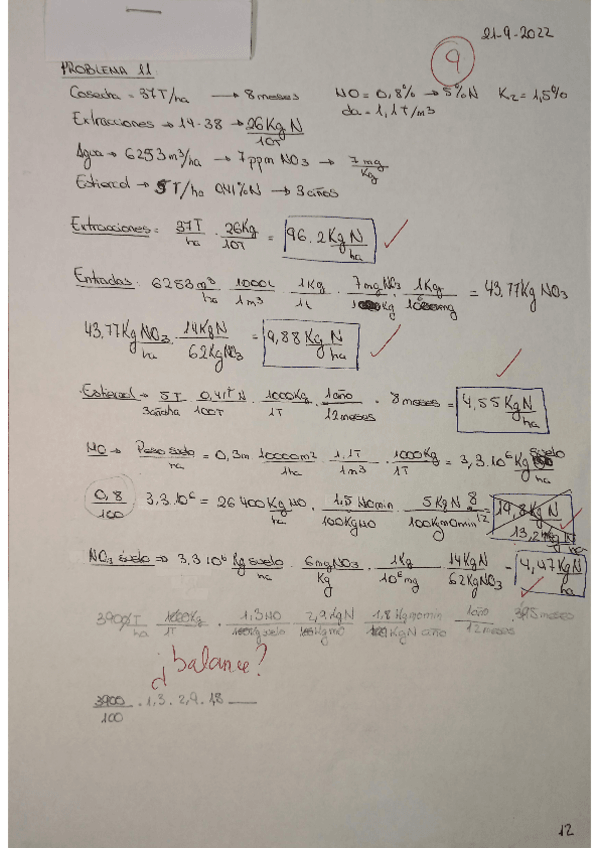 21-9-2022
9
PROBLEMA 11:
Cosecha = 37T/ha → 8 meses MO = 0,8% → 5%N K2 = 1,5%
da = 1,1T/m3
Extracciones → 14-38 → 26 Kg N / 10T
Agua → 6253 m3/ha → 7 ppm NO3 → 7 mg / Kg
Estiercol → 5T/ha 0,41%N → 3 años
Extracciones = 37T/ha · 26Kg/10T = 96.2 Kg N/ha
Entradas: 6253 m3/ha · 1000L/1m3 · 1Kg/1L · 7mg NO3/Kg · 1Kg/mg = 43.77 Kg NO3
43.77 Kg NO3/ha · 14 Kg N/62 Kg NO3 = 9,88 Kg N/ha
Estiercol → 5T/3años ha · 0,41T N/100T · 1000Kg/1T · 1año/12 meses · 8 meses = 4,55 Kg N/ha
MO → Peso suelo/ha = 0,3m · 10000m2/1ha · 1,1T/1m3 · 1000Kg/1T = 3,3.10⁶ Kg suelo/ha
0,8/100 · 3,3.10⁶ = 26400 Kg MO/ha · 1,5 MOmin/100KgMO · 5 Kg N/100KgMOmin · 8/12 = 19,8 Kg N 13,2 Kg N/ha
NO3 suelo ⇒ 3,3 10⁶ Kg suelo/ha · 6mg NO3/Kg · 1Kg/10⁶ mg · 14 Kg N/62 Kg NO3 = 4,47 Kg N/ha
1,3 MO · 2,9 Kg N · 1,8 Kg momin · 1año/12 meses
¿balance?
3900/100 · 1,3 · 2,9 · 1,8
12